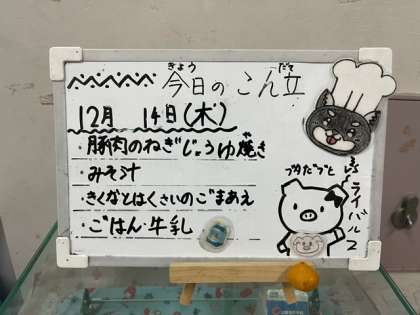 きょう だて
今日のこん立
12月 14日(木)
・豚肉のねぎじょうゆ焼き
・みそ汁
・きくなとはくさいのごまあえ
・ごはん・牛乳
ライバル